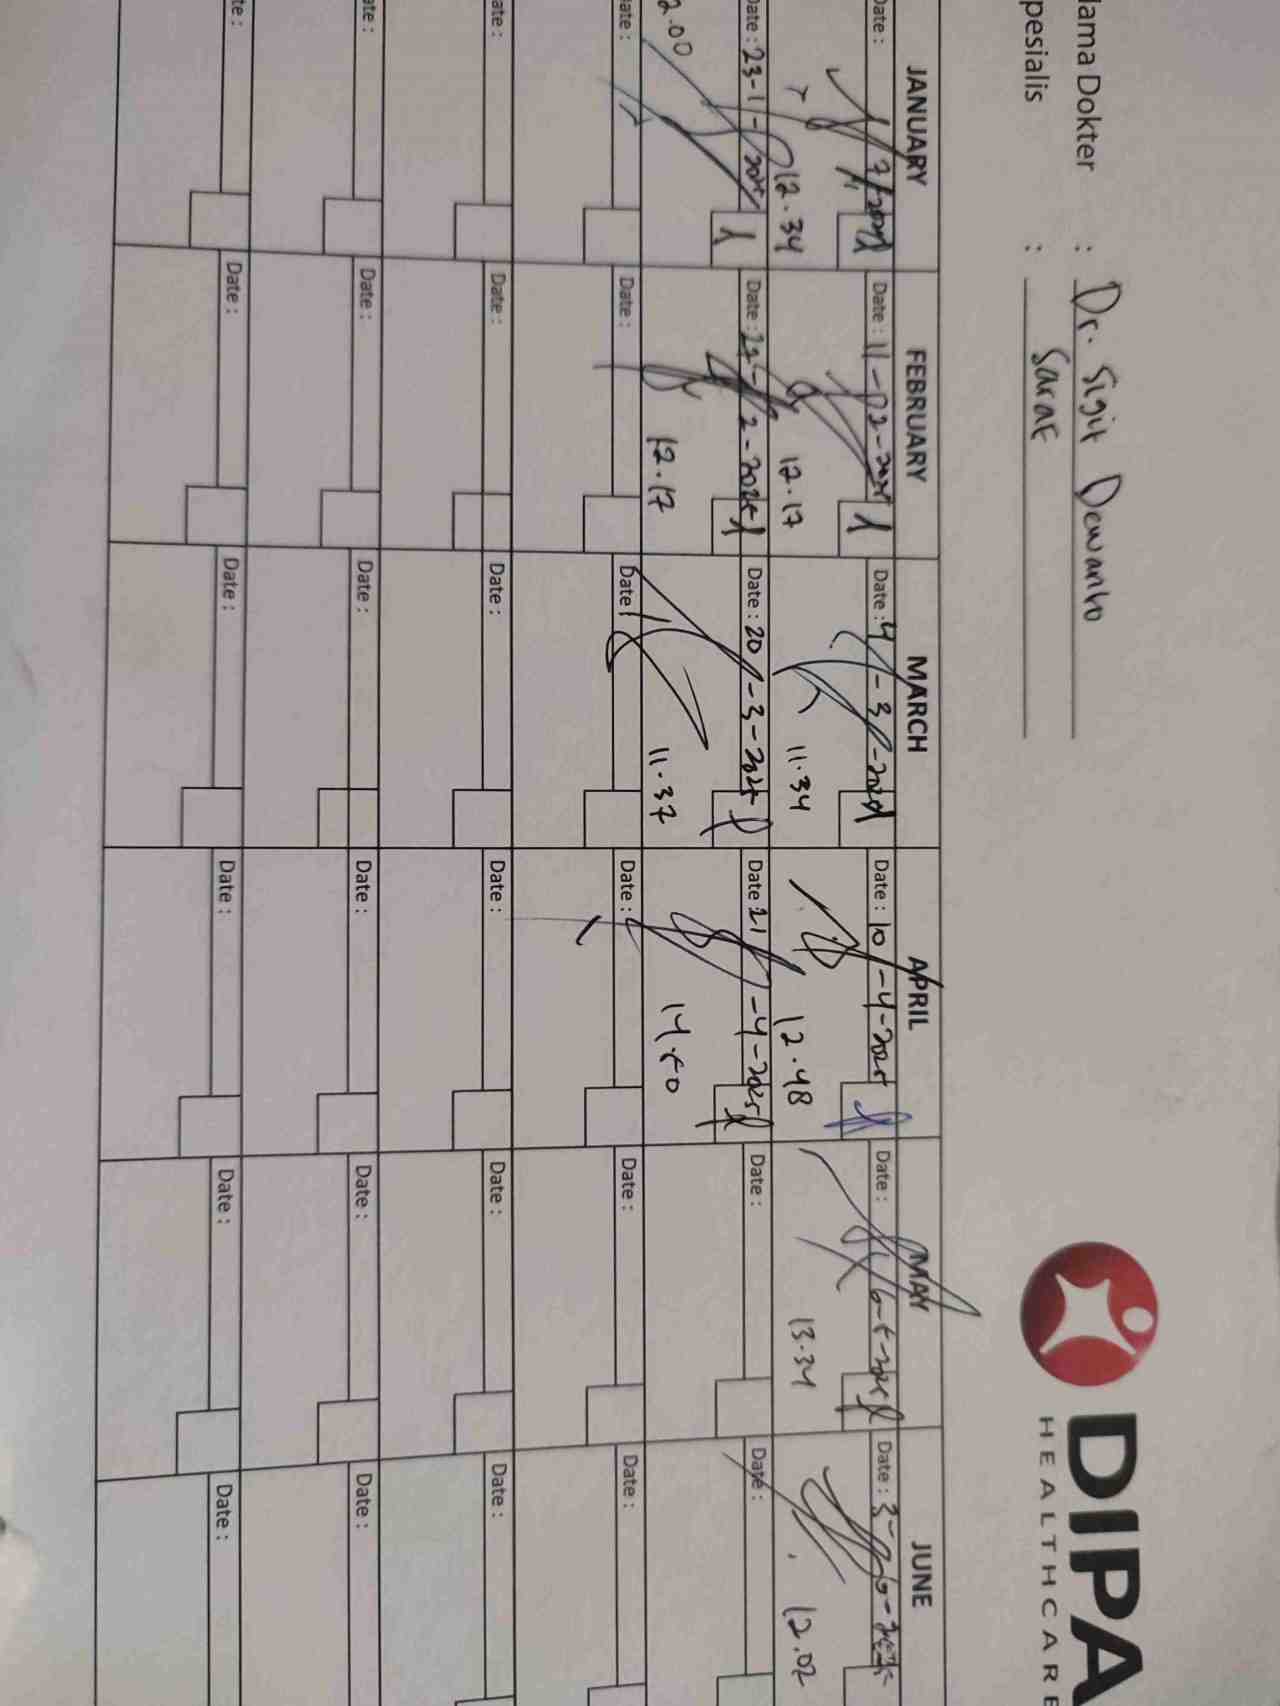 DIPA
HEALTHCARE
ama Dokter : Dr. Sigit Dewanto
pesialis : Saraf
JANUARY FEBRUARY MARCH APRIL MAY JUNE
Date : Date : 11-02-2025 Date : 4-3-2025 Date : 10-4-2025 Date : 6-5-2025 Date : 3-6-2025
12.34 12.17 11.34 12.48 13.34 12.02
Date : 23-1-2025 Date : 27-2-2025 Date : 20-3-2025 Date : 21-4-2025 Date : Date :
2.00 12.17 11.37 14.50
ate : Date : Date Date : Date : Date :
ate : Date : Date : Date : Date : Date :
ate : Date : Date : Date : Date : Date :
te : Date : Date : Date : Date : Date :